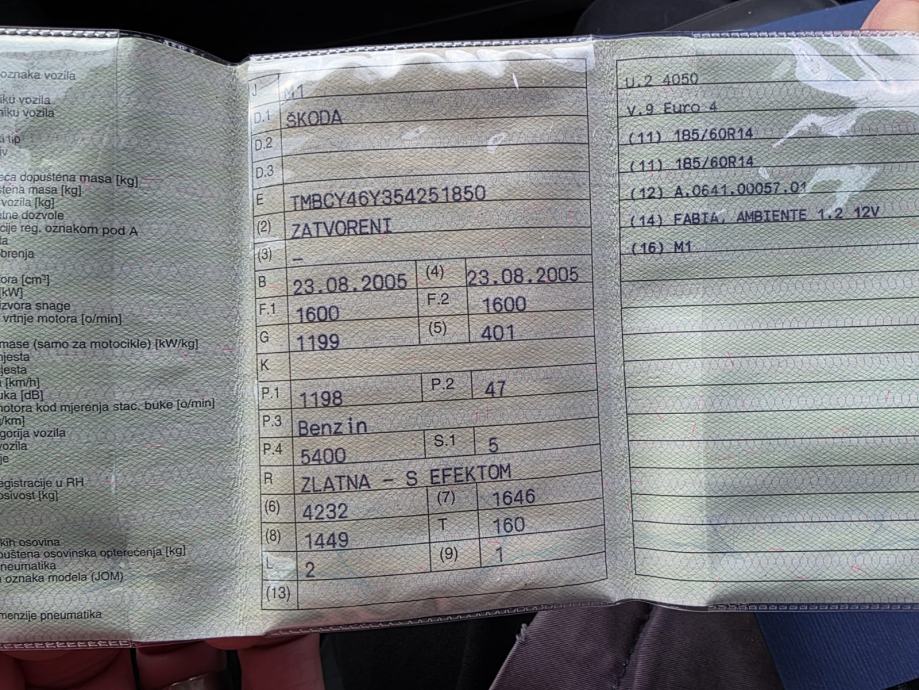 oznaka vozila
iku vozila
niku vozila
tip
eća dopuštena masa [kg]
štena masa [kg]
vozila [kg]
dozvole
cije reg. oznakom pod A
ta
obrenja
ora [cm³]
[kW]
izvora snage
vrtnje motora [o/min]
mase (samo za motocikle) [kW/kg]
mjesta
jesta
[km/h]
uka [dB]
motora kod mjerenja stac. buke [o/min]
/km]
gorija vozila
vozila
je
egistracije u RH
osivost [kg]
kih osovina
puštena osovinska opterećenja [kg]
neumatika
oznaka modela (JOM)
menzije pneumatika
J M1
D.1 ŠKODA
D.2
D.3
E TMBCY46Y354251850
(2) ZATVORENI
(3) –
B 23.08.2005 (4) 23.08.2005
F.1 1600 F.2 1600
G 1199 (5) 401
K
P.1 1198 P.2 47
P.3 Benzin
P.4 5400 S.1 5
R ZLATNA – S EFEKTOM
(6) 4232 (7) 1646
(8) 1449 T 160
L 2 (9) 1
(13)
U.2 4050
V.9 Euro 4
(11) 185/60R14
(11) 185/60R14
(12) A.0641.00057.01
(14) FABIA, AMBIENTE 1.2 12V
(16) M1